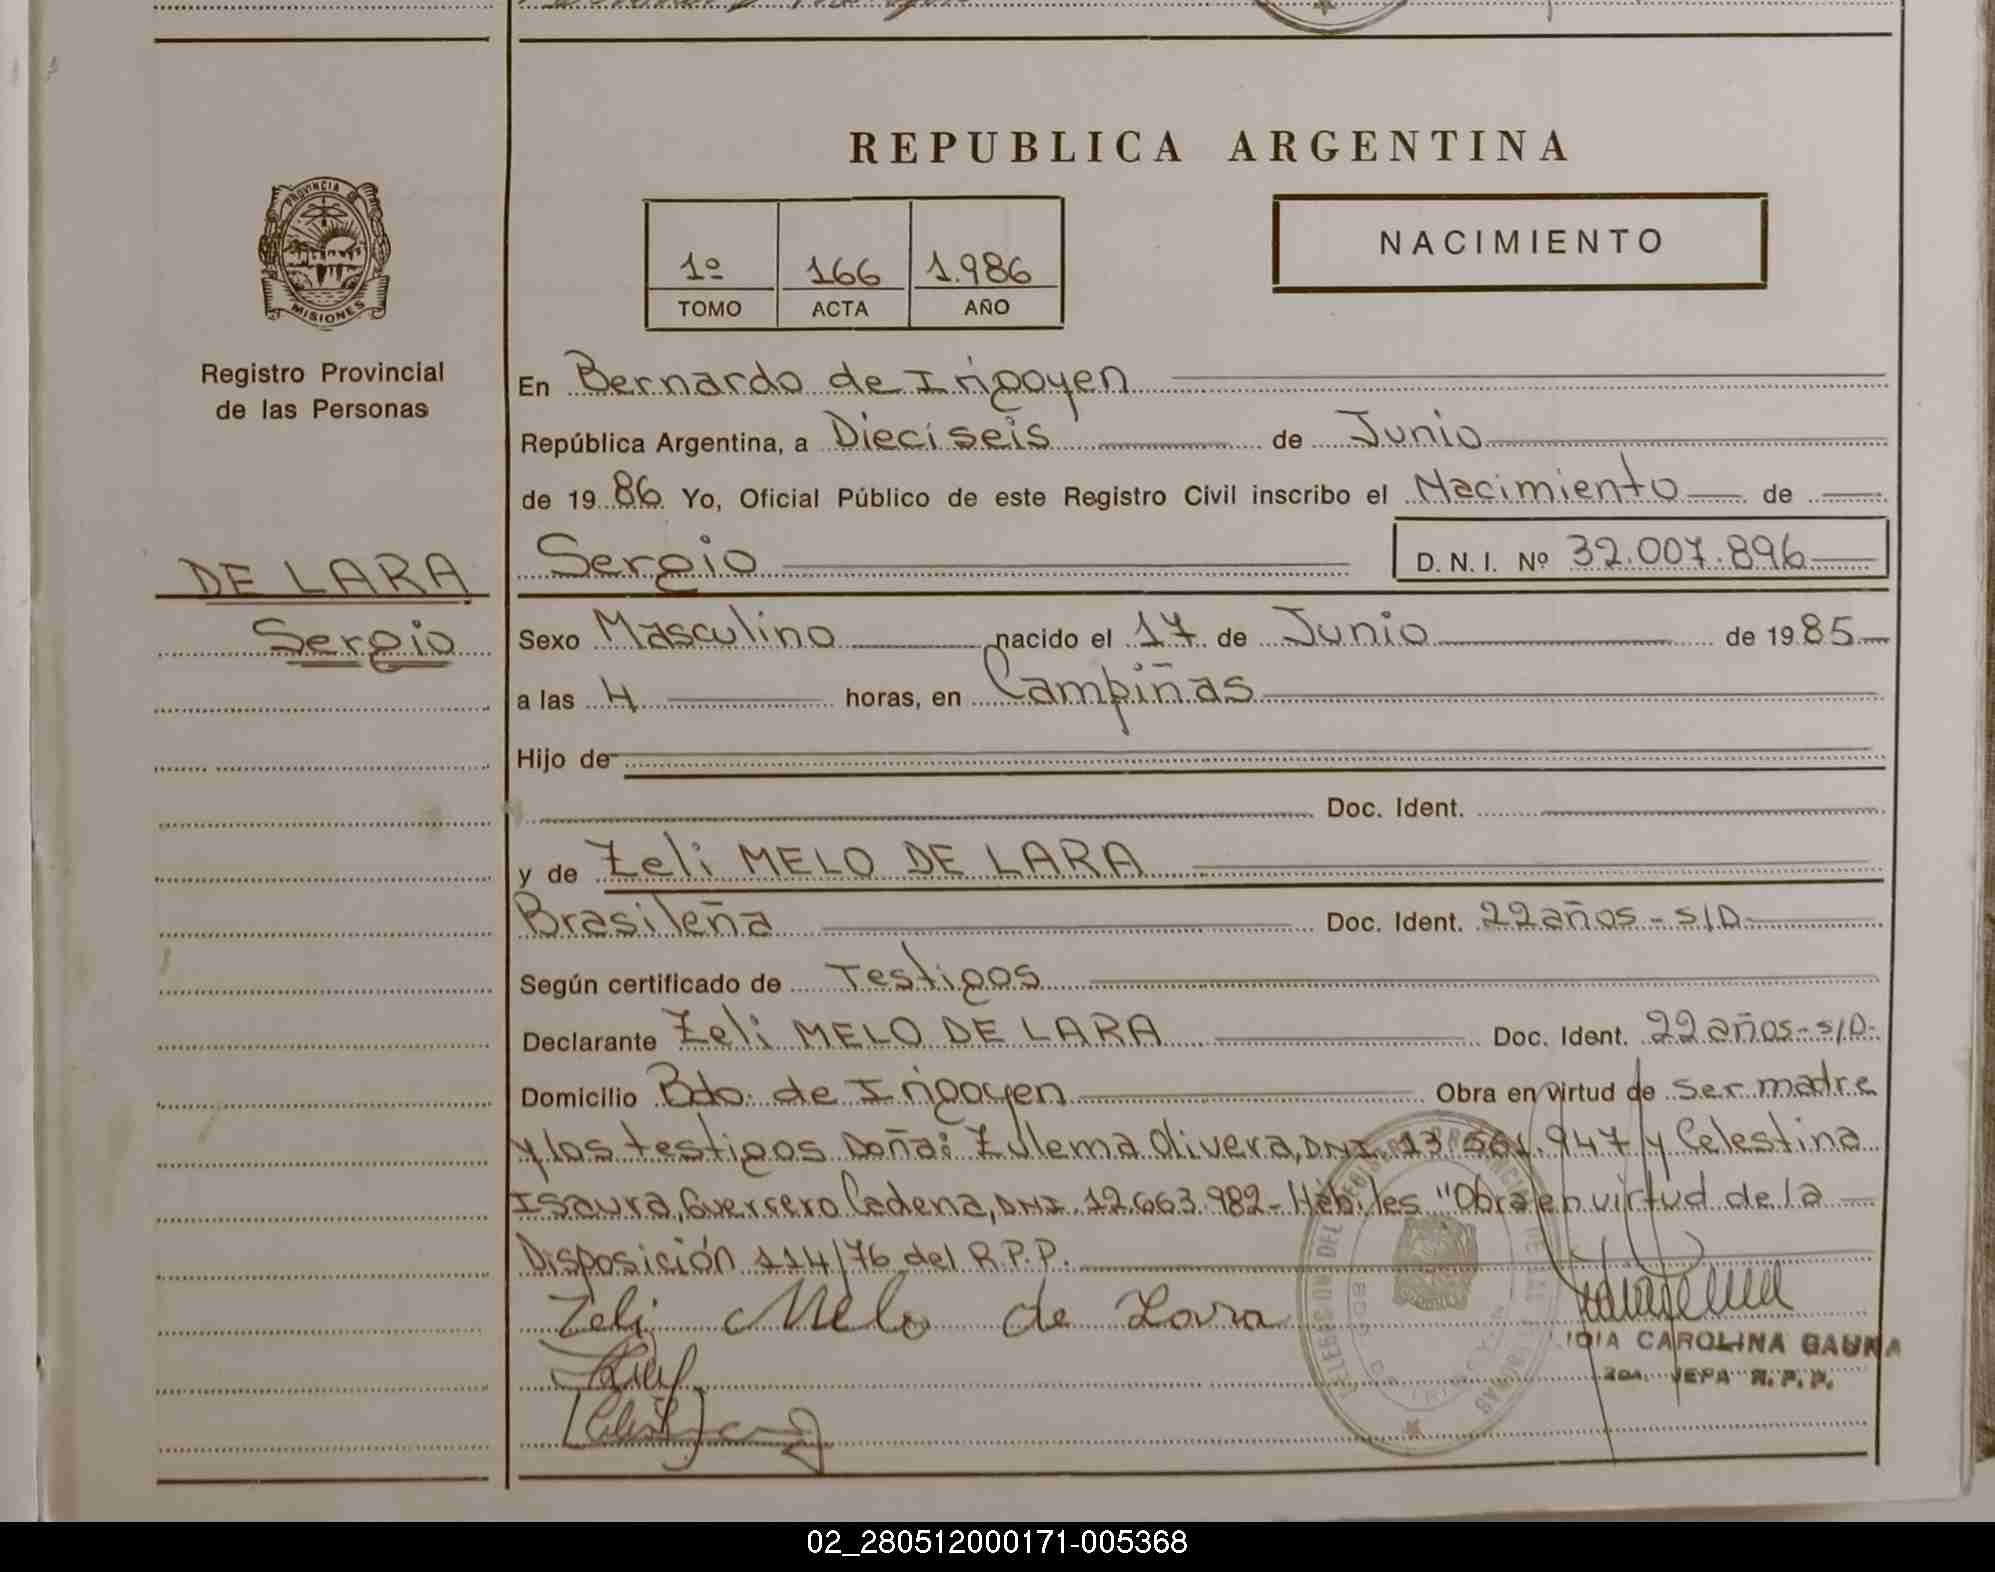 REPUBLICA ARGENTINA
PROVINCIA DE MISIONES
Registro Provincial
de las Personas
1º 166 1.986
TOMO ACTA AÑO
NACIMIENTO
En Bernardo de Irigoyen
República Argentina, a Dieciseis de Junio
de 1986 Yo, Oficial Público de este Registro Civil inscribo el Nacimiento de
DE LARA
Sergio
Sergio D. N. I. Nº 32.007.896
Sexo Masculino nacido el 17 de Junio de 1985
a las 4 horas, en Campiñas
Hijo de
Doc. Ident.
y de Zeli MELO DE LARA
Brasileña Doc. Ident. 22 años - S/D
Según certificado de Testigos
Declarante Zeli MELO DE LARA Doc. Ident. 22 años - S/D.
Domicilio Bdo. de Irigoyen Obra en virtud de ser madre
y los testigos Doña: Zulema Olivera, DNI. 13.561.947 y Celestina
Isaura, Guerrero Cadena, DNI. 12.663.982 - Hábiles "Obra en virtud de la
Disposición 114/76 del R.P.P.
Zeli Melo de Lara
IDIA CAROLINA GAUNA
JEFA R.P.P.
02_280512000171-005368